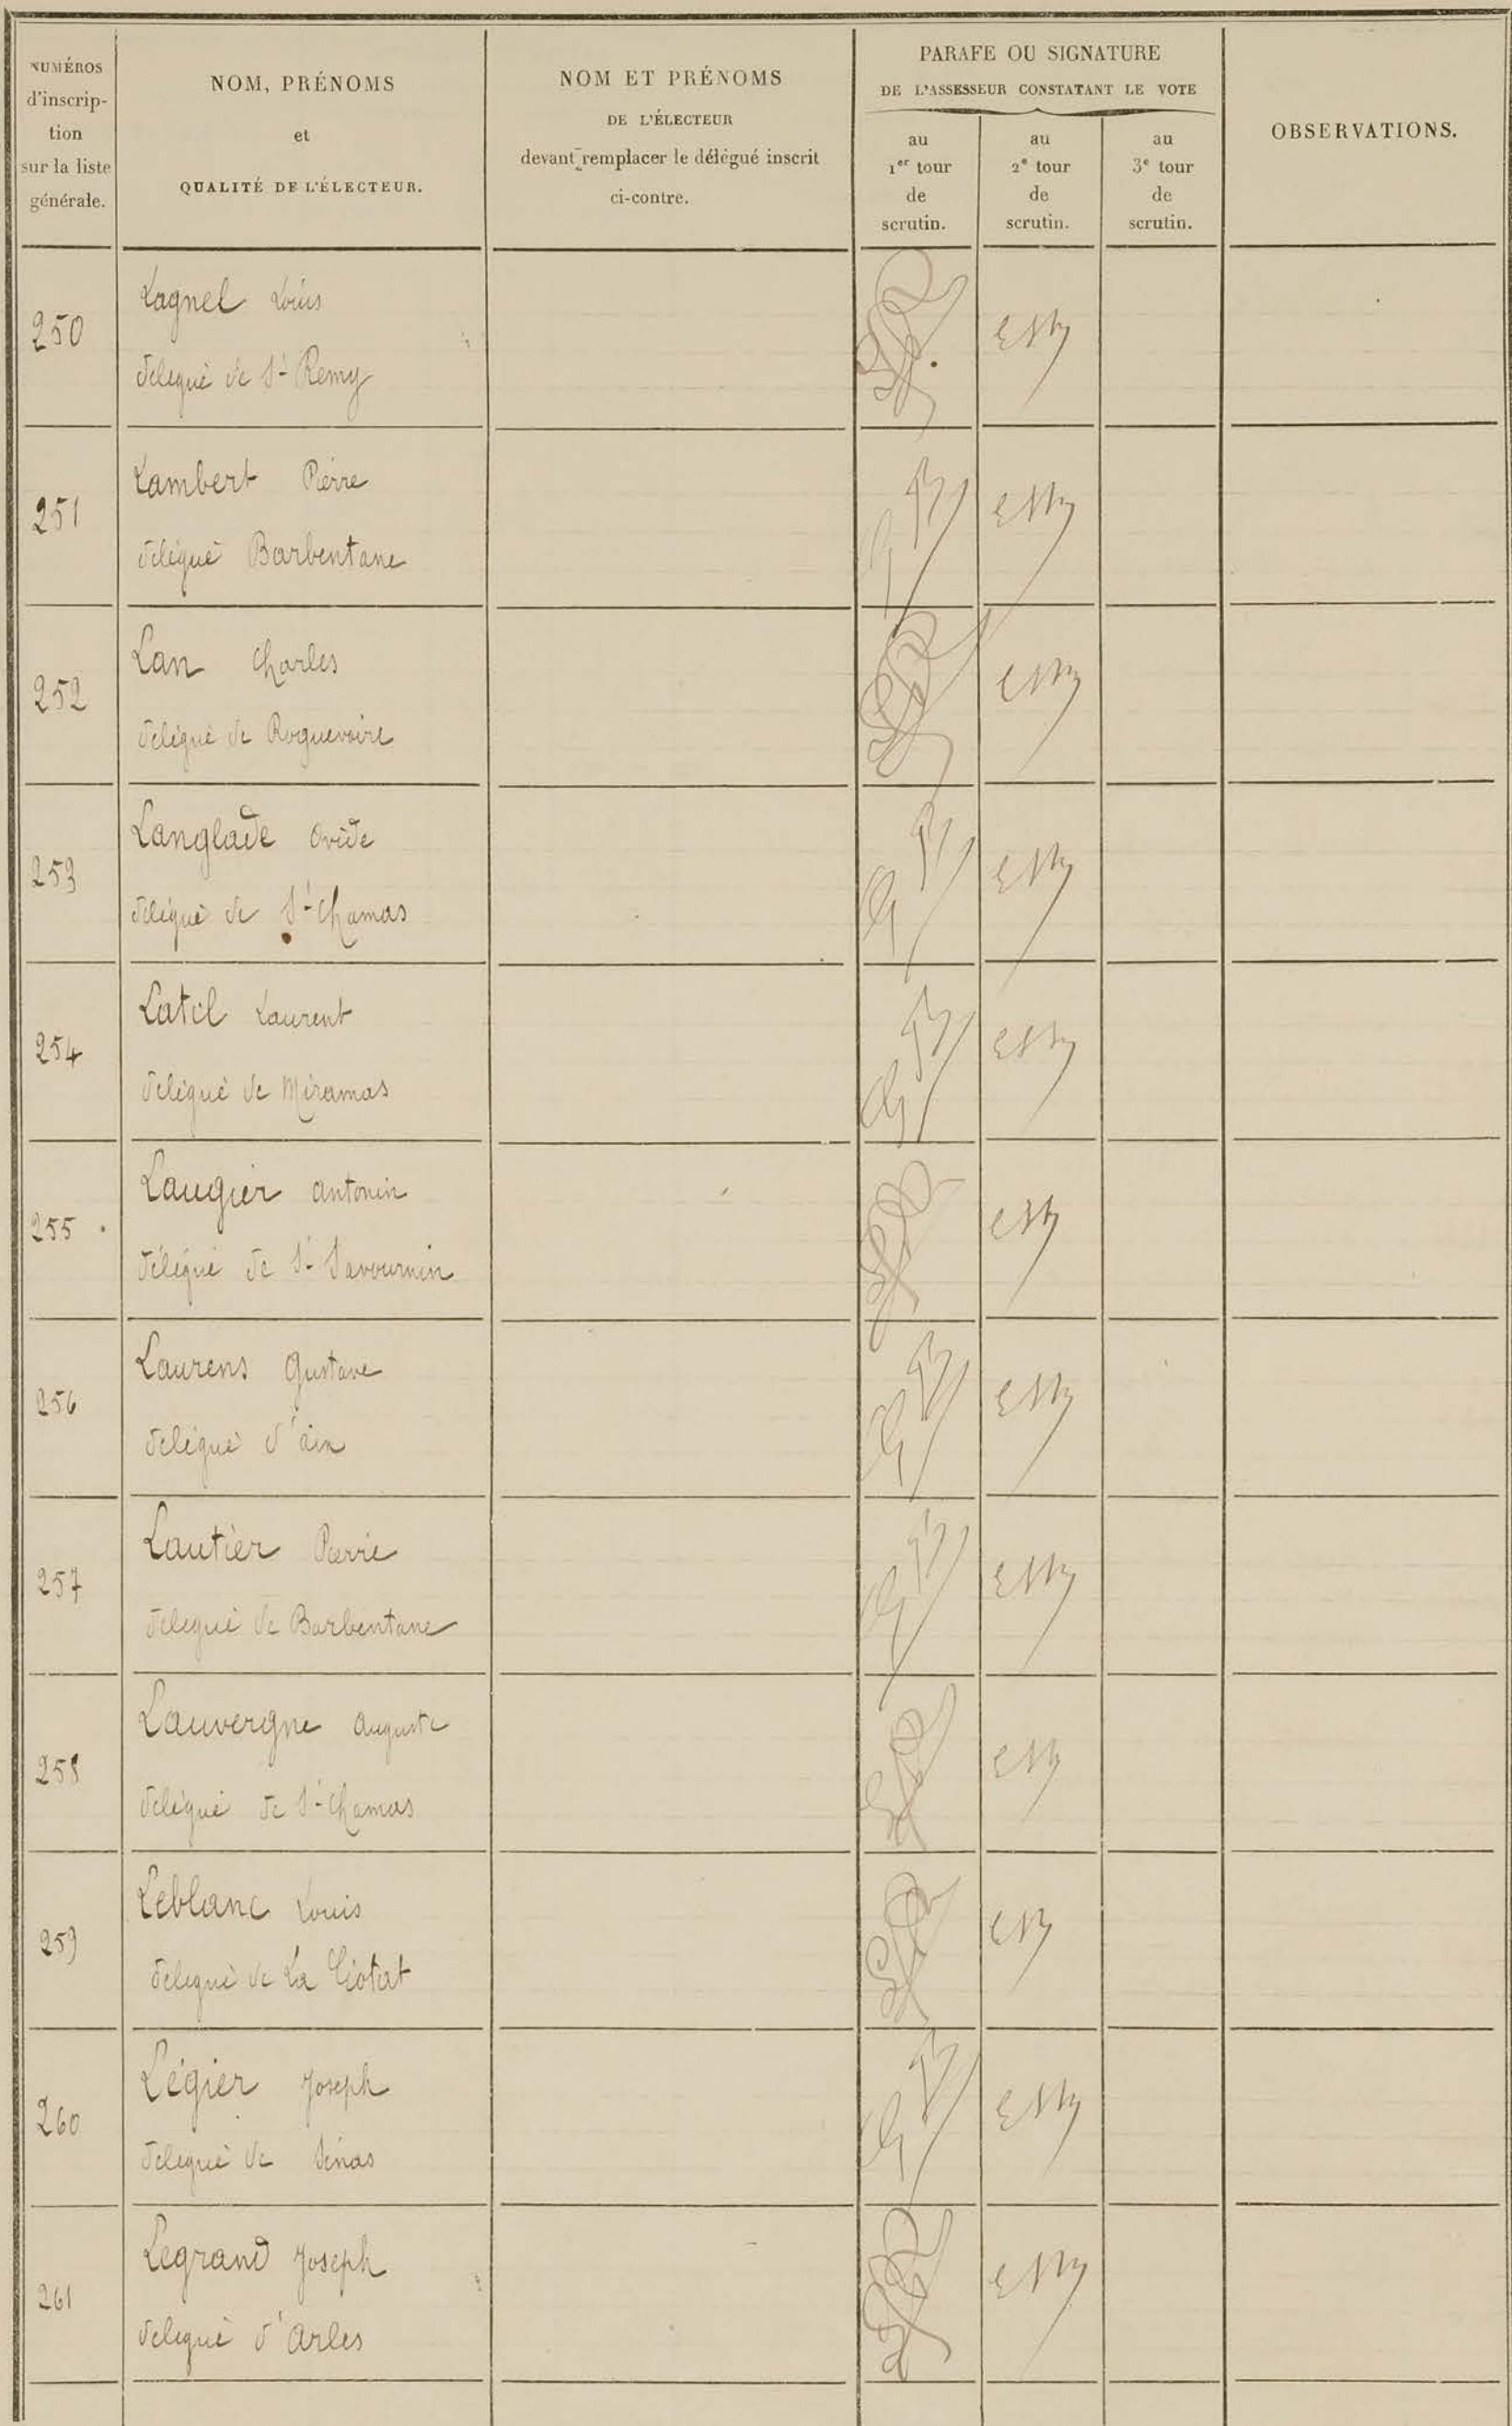 NUMÉROS
d'inscrip-
tion
sur la liste
générale.
NOM, PRÉNOMS
et
QUALITÉ DE L'ÉLECTEUR.
NOM ET PRÉNOMS
DE L'ÉLECTEUR
devant remplacer le délégué inscrit
ci-contre.
PARAFE OU SIGNATURE
DE L'ASSESSEUR CONSTATANT LE VOTE
au
1er tour
de
scrutin.
au
2e tour
de
scrutin.
au
3e tour
de
scrutin.
OBSERVATIONS.
250
Lagnel Louis
délégué de St Remy
251
Lambert Pierre
délégué Barbentane
252
Lan Charles
délégué de Roquevaire
253
Langlade Ovide
délégué de St Chamas
254
Latil Laurent
délégué de Miramas
255
Laugier Antonin
délégué de St Savournin
256
Laurens Gustave
délégué d'aix
257
Lautier Pierre
délégué de Barbentane
258
Lauvergne Auguste
délégué de St Chamas
259
Leblanc Louis
délégué de La Ciotat
260
Légier Joseph
délégué de Sénas
261
Legrand Joseph
délégué d'Arles